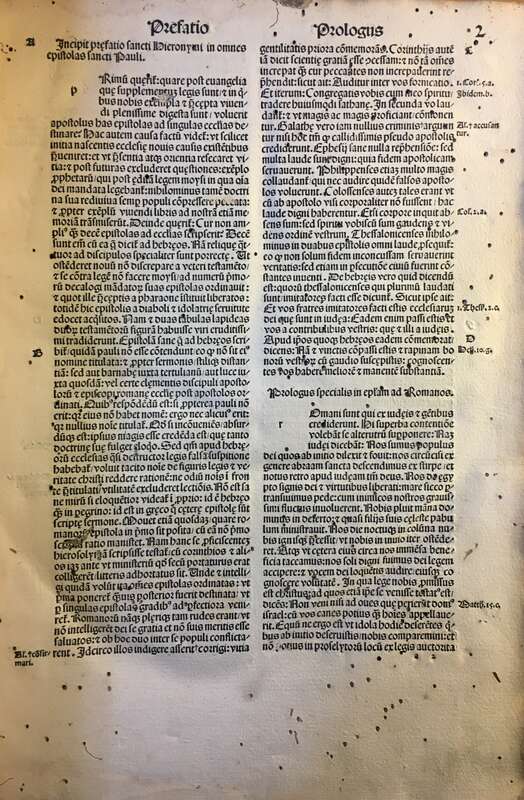 Prefatio
Prologus
2
A
Incipit prefatio sancti Hieronymi in omnes
epistolas sancti Pauli.
p
Rimū querit: quare post euangelia
que supplementum legis sunt et in q̄-
bus nobis exempla et p̄cepta viuen-
di plenissime digesta sunt: voluerit
apostolus has epistolas ad singulas ecclesias de-
stinare. Hac autem causa factū videt: vt scilicet
initia nascentis ecclesie nouis causis existētibus
p̄ueniret: et vt p̄sentia atqȝ orientia resecaret vi-
tia: et post futuras excluderet questiones: exēplo
prophetarū: qui post editā legem moysi in qua oīa
dei mandata legebant: nihilominus tamē doctri-
na sua rediuiua semp populi cōpressere peccata:
et propter exēplū viuendi libris ad nostrā etiā me-
moriā trāsmiserūt. Deinde querit: Cur non am-
plꝰ qȝ decē epistolas ad ecclesias scripserit? Decē
sunt em̄ cū ea q̄ dicit ad hebreos. Nā relique qt-
tuor ad discipulos specialiter sunt porrecte. Ut
ostēderet nouū nō discrepare a veteri testamēto:
et se cōtra legē nō facere moysi: ad numerū pmo-
rū decalogi mādatorū suas epistolas ordinauit:
et quot ille p̄ceptis a pharaone īstituit liberatos:
totidē hic epistolis a diaboli et idolatrie seruitute
edocet acquisitos. Nam et duas tabulas lapideas
duorū testamētorū figurā habuisse viri eruditissi-
mi tradiderunt.
B
Epistolā sane q̄ ad hebreos scri-
bit: quidā pauli nō esse cōtendunt: eo qȝ nō sit eiꝰ
nomine titulata: et propter sermonis stiliqȝ distan-
tiā: sed aut barnabe iuxta tertulianū: aut luce iu-
xta quosdā: vel certe clementis discipuli aposto-
lorū et episcopi romane ecclesie post apostolos or-
dinati. Quibꝰ respōdēdū est: si propterea pauli nō
erit: qȝ eius nō habet nomē: ergo nec alicuiꝰ erit:
qȝ nullius noīe titulat̄. Qd̄ si incōueniēs absur-
dūqȝ est: ipsius magis esse credēda est: que tanto
doctrine sue fulget eloqio. Sed qm̄ apud hebreo-
rū ecclesias qsi destructor legis falsa suspitione
habebat: voluit tacito noīe de figuris legis et ve-
ritate christi reddere rationē: ne odiū noīs in fron-
te p̄titulati vtilitatē excluderet lectiōis. Nō est sa-
ne mirū si eloquētior videat in proprio: id est hebreo
qȝ in peregrino: id est in greco quo cetere epistole sūt
scripte sermone. Mouet etiā quosdā: quare ro-
manorū epistola in prīo sit posita: cū eā nō prīo
scriptā ratio manifestet. Nam hanc se proficiscentē
hierosolymā scripsisse testat̄: cū corinthios et ali-
os iā ante vt ministeriū qd̄ secū portaturus erat
colligerēt: litteris adhortatus sit. Unde et intelli-
gi quidā volūt ita omnes epistolas ordinatas: vt
prima poneret q̄uis posterior fuerit destinata: vt
per singulas epistolas gradibꝰ ad perfectiora veni-
ret. Romanorū nāqȝ pleriqȝ tam rudes erant: vt
nō intelligerēt dei se gratia et nō suis meritis esse
saluatos: et ob hoc duo inter se populi conflicta-
rent. Idcirco illos indigere asserit cōfirmari: vitia
Al. et cōfir-
mari.
gentilitatis priora cōmemorās. Corinthijs autē iā
dicit scientie gratiā esse concessam: et nō tā omēs
increpat qȝ cur peccantes non increpauerint re-
prehendit: sicut ait: Auditur inter vos fornicatio.
1. Cor. 5. a.
Et iterum: Congregatis vobis cū meo spiritu
Ibidem. b.
tradere huiusmodi sathane. In secunda vo lau-
dant: et vt magis ac magis proficiant cōmonen-
tur. Galathe vero iam nullius criminis arguun-
Al. et accusan-
tur.
tur nisi hoc tm̄ qȝ callidissimis pseudo apostolis
crediderunt. Ephesij sane nulla reprehēsione: sed
multa laude sunt digni: quia fidem apostolicam
seruauerunt. Philippenses etiā multo magis
collaudant̄: qui nec audire quidē falsos aposto-
los voluerunt. Colossenses autē tales erant: vt
cū ab apostolo visi corporaliter nō fuissent: hac
laude digni haberentur. Etsi corpore inquit ab-
Col. 2. a.
sens sum: sed spiritu vobiscū sum gaudens et vi-
dens ordinē vestrum. Thessalonicenses nihilo-
minus in duabus epistolis omni laude prosequit̄:
eo qȝ non solum fidem inconcussam seruauerūt
veritatis: sed etiam in persecutiōe ciuiū fuerint cō-
stantes inuenti. De hebreis vero quid dicendū
est: quorū thessalonicenses qui plurimū laudati
sunt: imitatores facti esse dicunt̄. Sicut ipse ait:
Et vos fratres imitatores facti estis ecclesiarum
1. Thess. 2. c.
dei que sunt in iudea: Eadem enim passi estis et
vos a contribulibus vestris: que et illi a iudeis.
Apud ipsos quoqȝ hebreos eadem cōmemorat
D
dicens: Nā et vinctis cōpassi estis: et rapinam bo-
Heb. 10. g.
norū vestrorū cū gaudio suscepistis: cognoscen-
tes vos habere meliorē et manentē substantiā.
Prologus specialis in epistolam ad Romanos.
r
Omani sunt qui ex iudeis et gētibus
crediderunt. Hi superba contentiōe
volebāt se alterutrū supponere: Nam
iudei dicebāt: Nos sumus populus
dei quos ab initio dilexit et fouit: nos circūcisi ex
genere abraam sancta descendimus ex stirpe: et
notus retro apud iudeam tm̄ deus. Nos de egy-
pto signis dei et virtutibus liberati: mare sicco p̄
transiuimus pede: cum inimicos nostros grauis-
simi fluctus inuoluerent. Nobis pluit māna do-
minus in deserto: et quasi filijs suis celeste pabu-
lum ministrauit. Nos die noctuqȝ in colūna nu-
bis ignisqȝ precessit: vt nobis in inuio iter ostēde-
ret. Atqȝ vt cetera eius circa nos immēsa bene-
ficia taceamus: nos soli digni fuimus dei legem
accipere: et vocem dei loquētis audire: eiusqȝ co-
gnoscere volūtatē. In qua lege nobis promissus
est christus: ad quos etiā ipse se venisse testatꝰ est:
dicens: Non veni nisi ad oues que perierūt domꝰ
Matth. 15. c.
israel: cū vos canes potius qȝ hoīes appellaue-
rit. Equū ne ergo est vt idola hodie deserētes qui-
bus ab initio deseruistis: nobis comparemini: et
nō potius in proselytorū locū ex legis auctorita